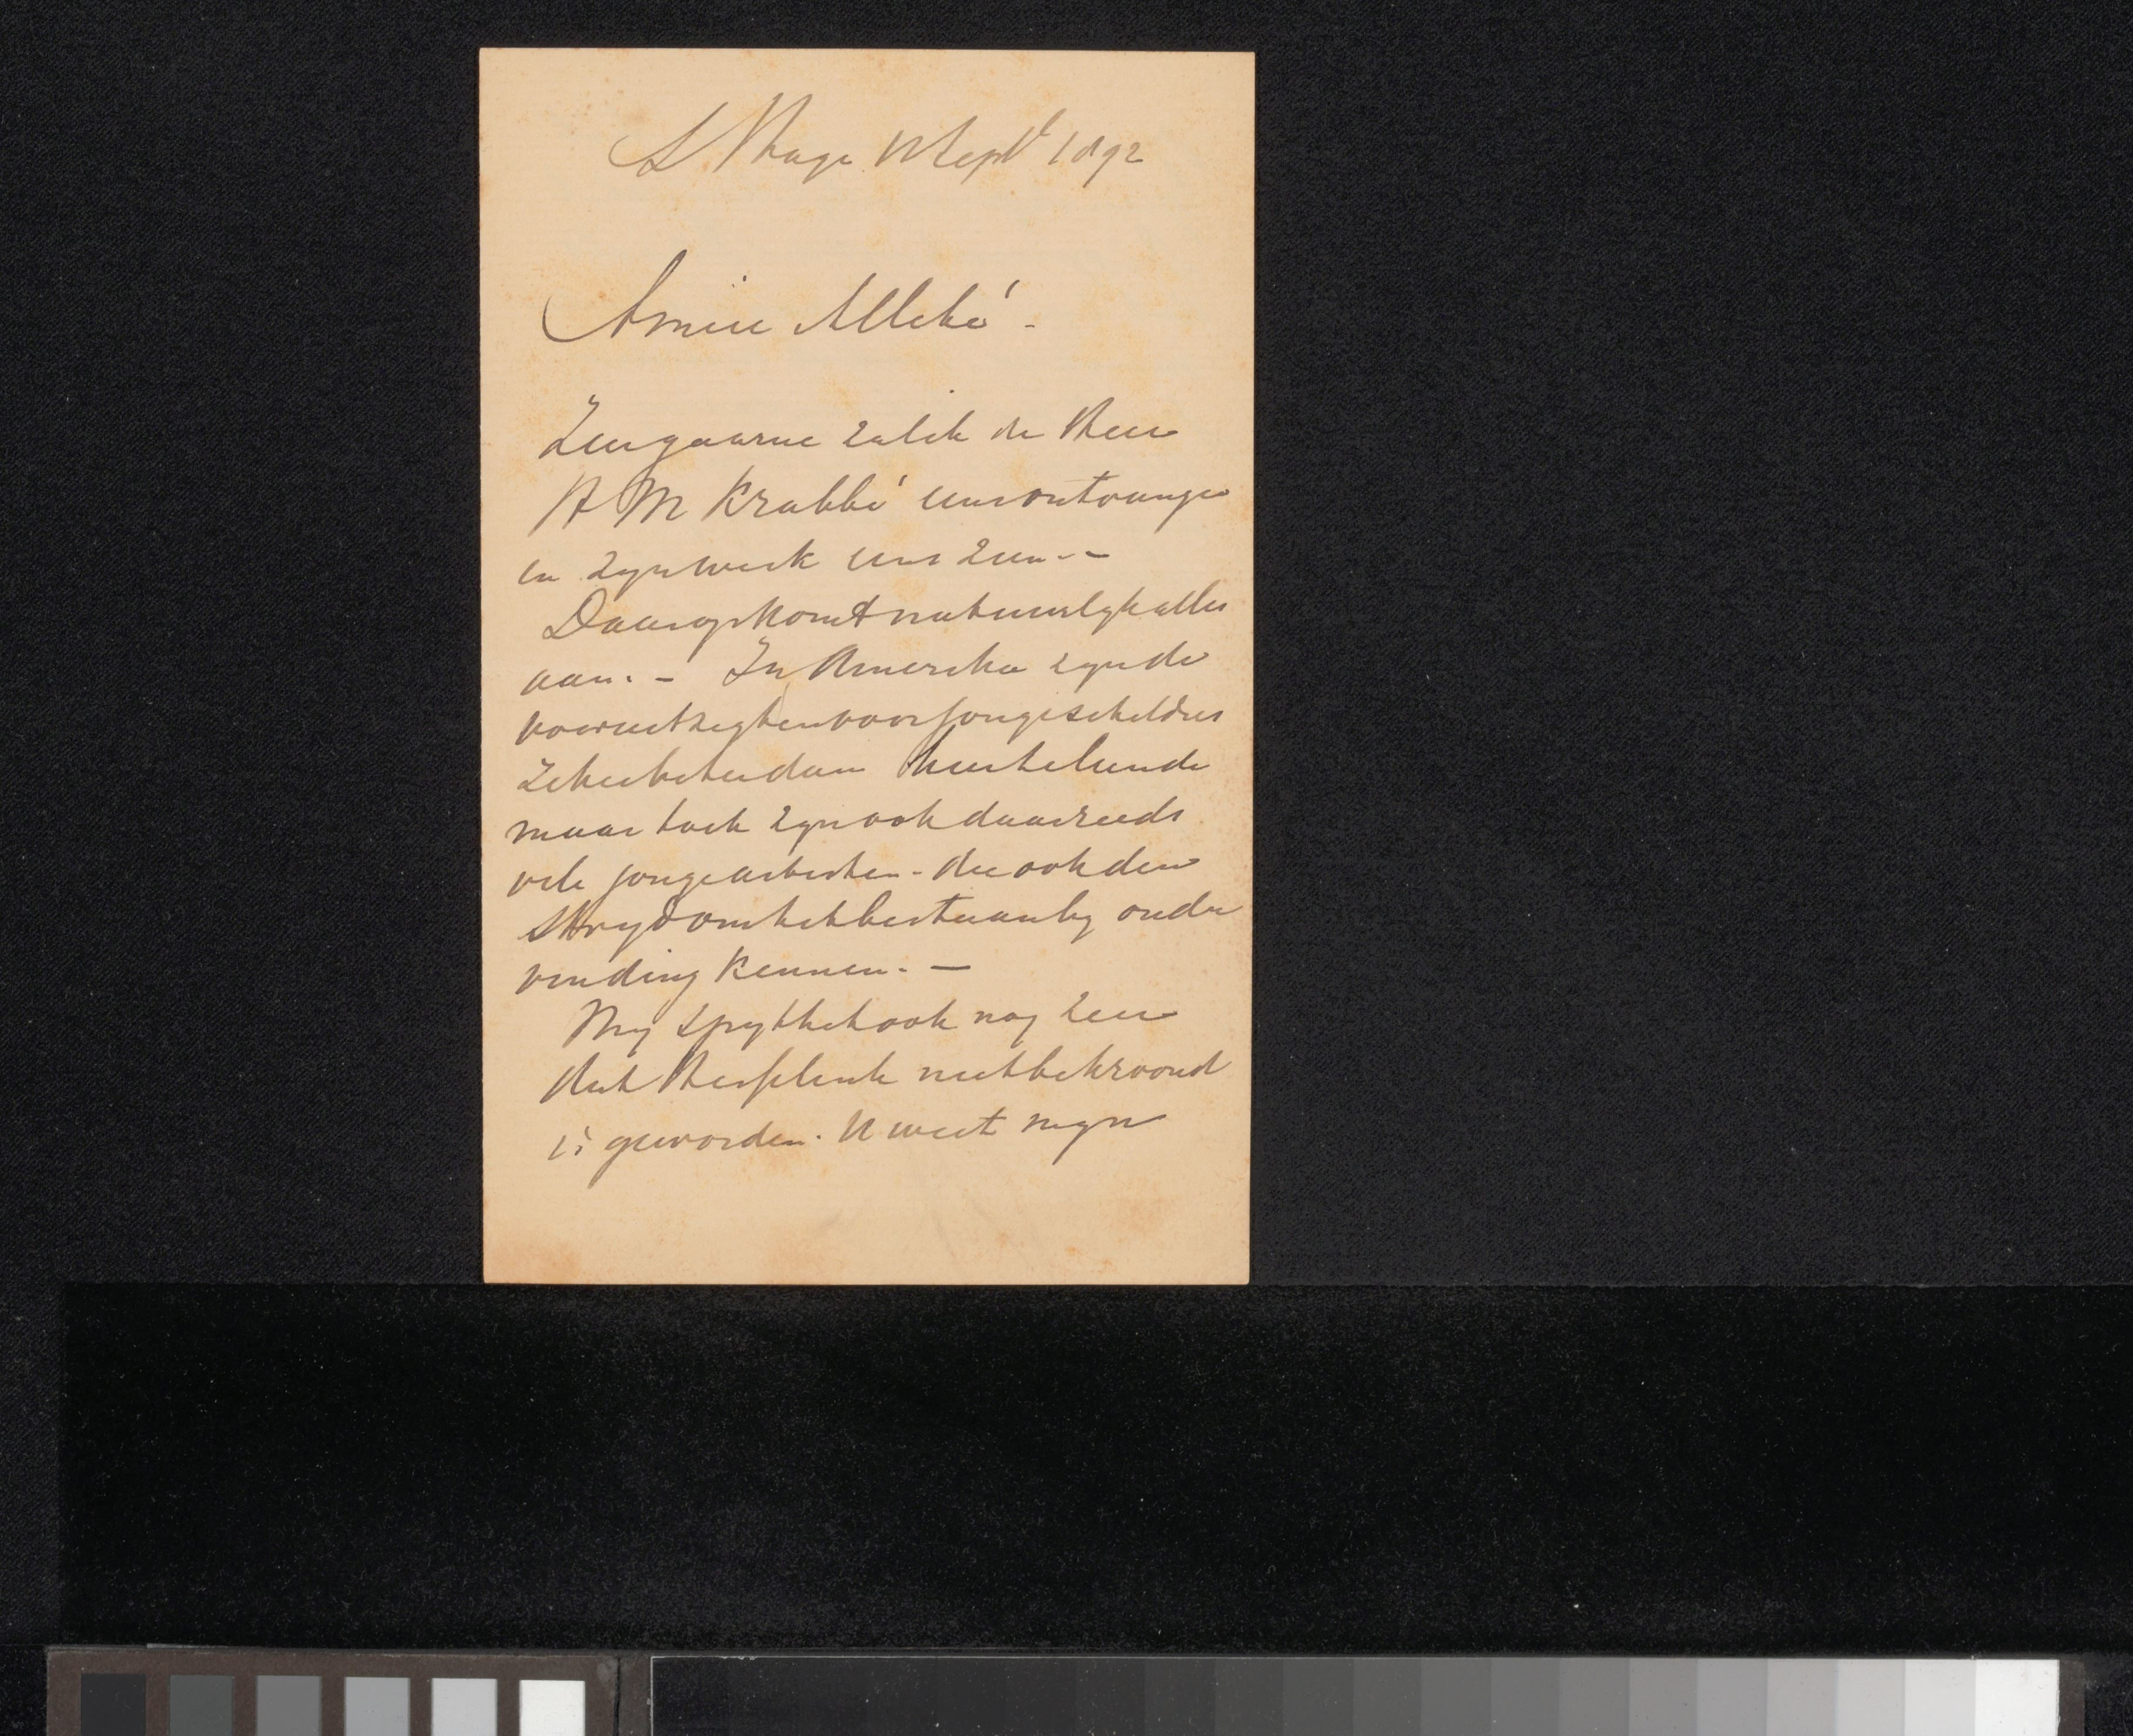 S'Hage Sept 1892
Amice Allebé -
Zeer gaarne zal ik de Heer
H M Krabbé eens ontvangen
en zyn werk eens zien. -
Daarop komt natuurlyk alles
aan. - In Amerika zyn de
vooruitzigten voor jonge schilders
zeker beter dan hier te lande
maar toch zyn ook daar reeds
vele jonge artisten - die ook den
stryd om het bestaan by onder
vinding kennen. -
My spyt het ook nog zeer
dat niet bekroond
is geworden. U weet myn